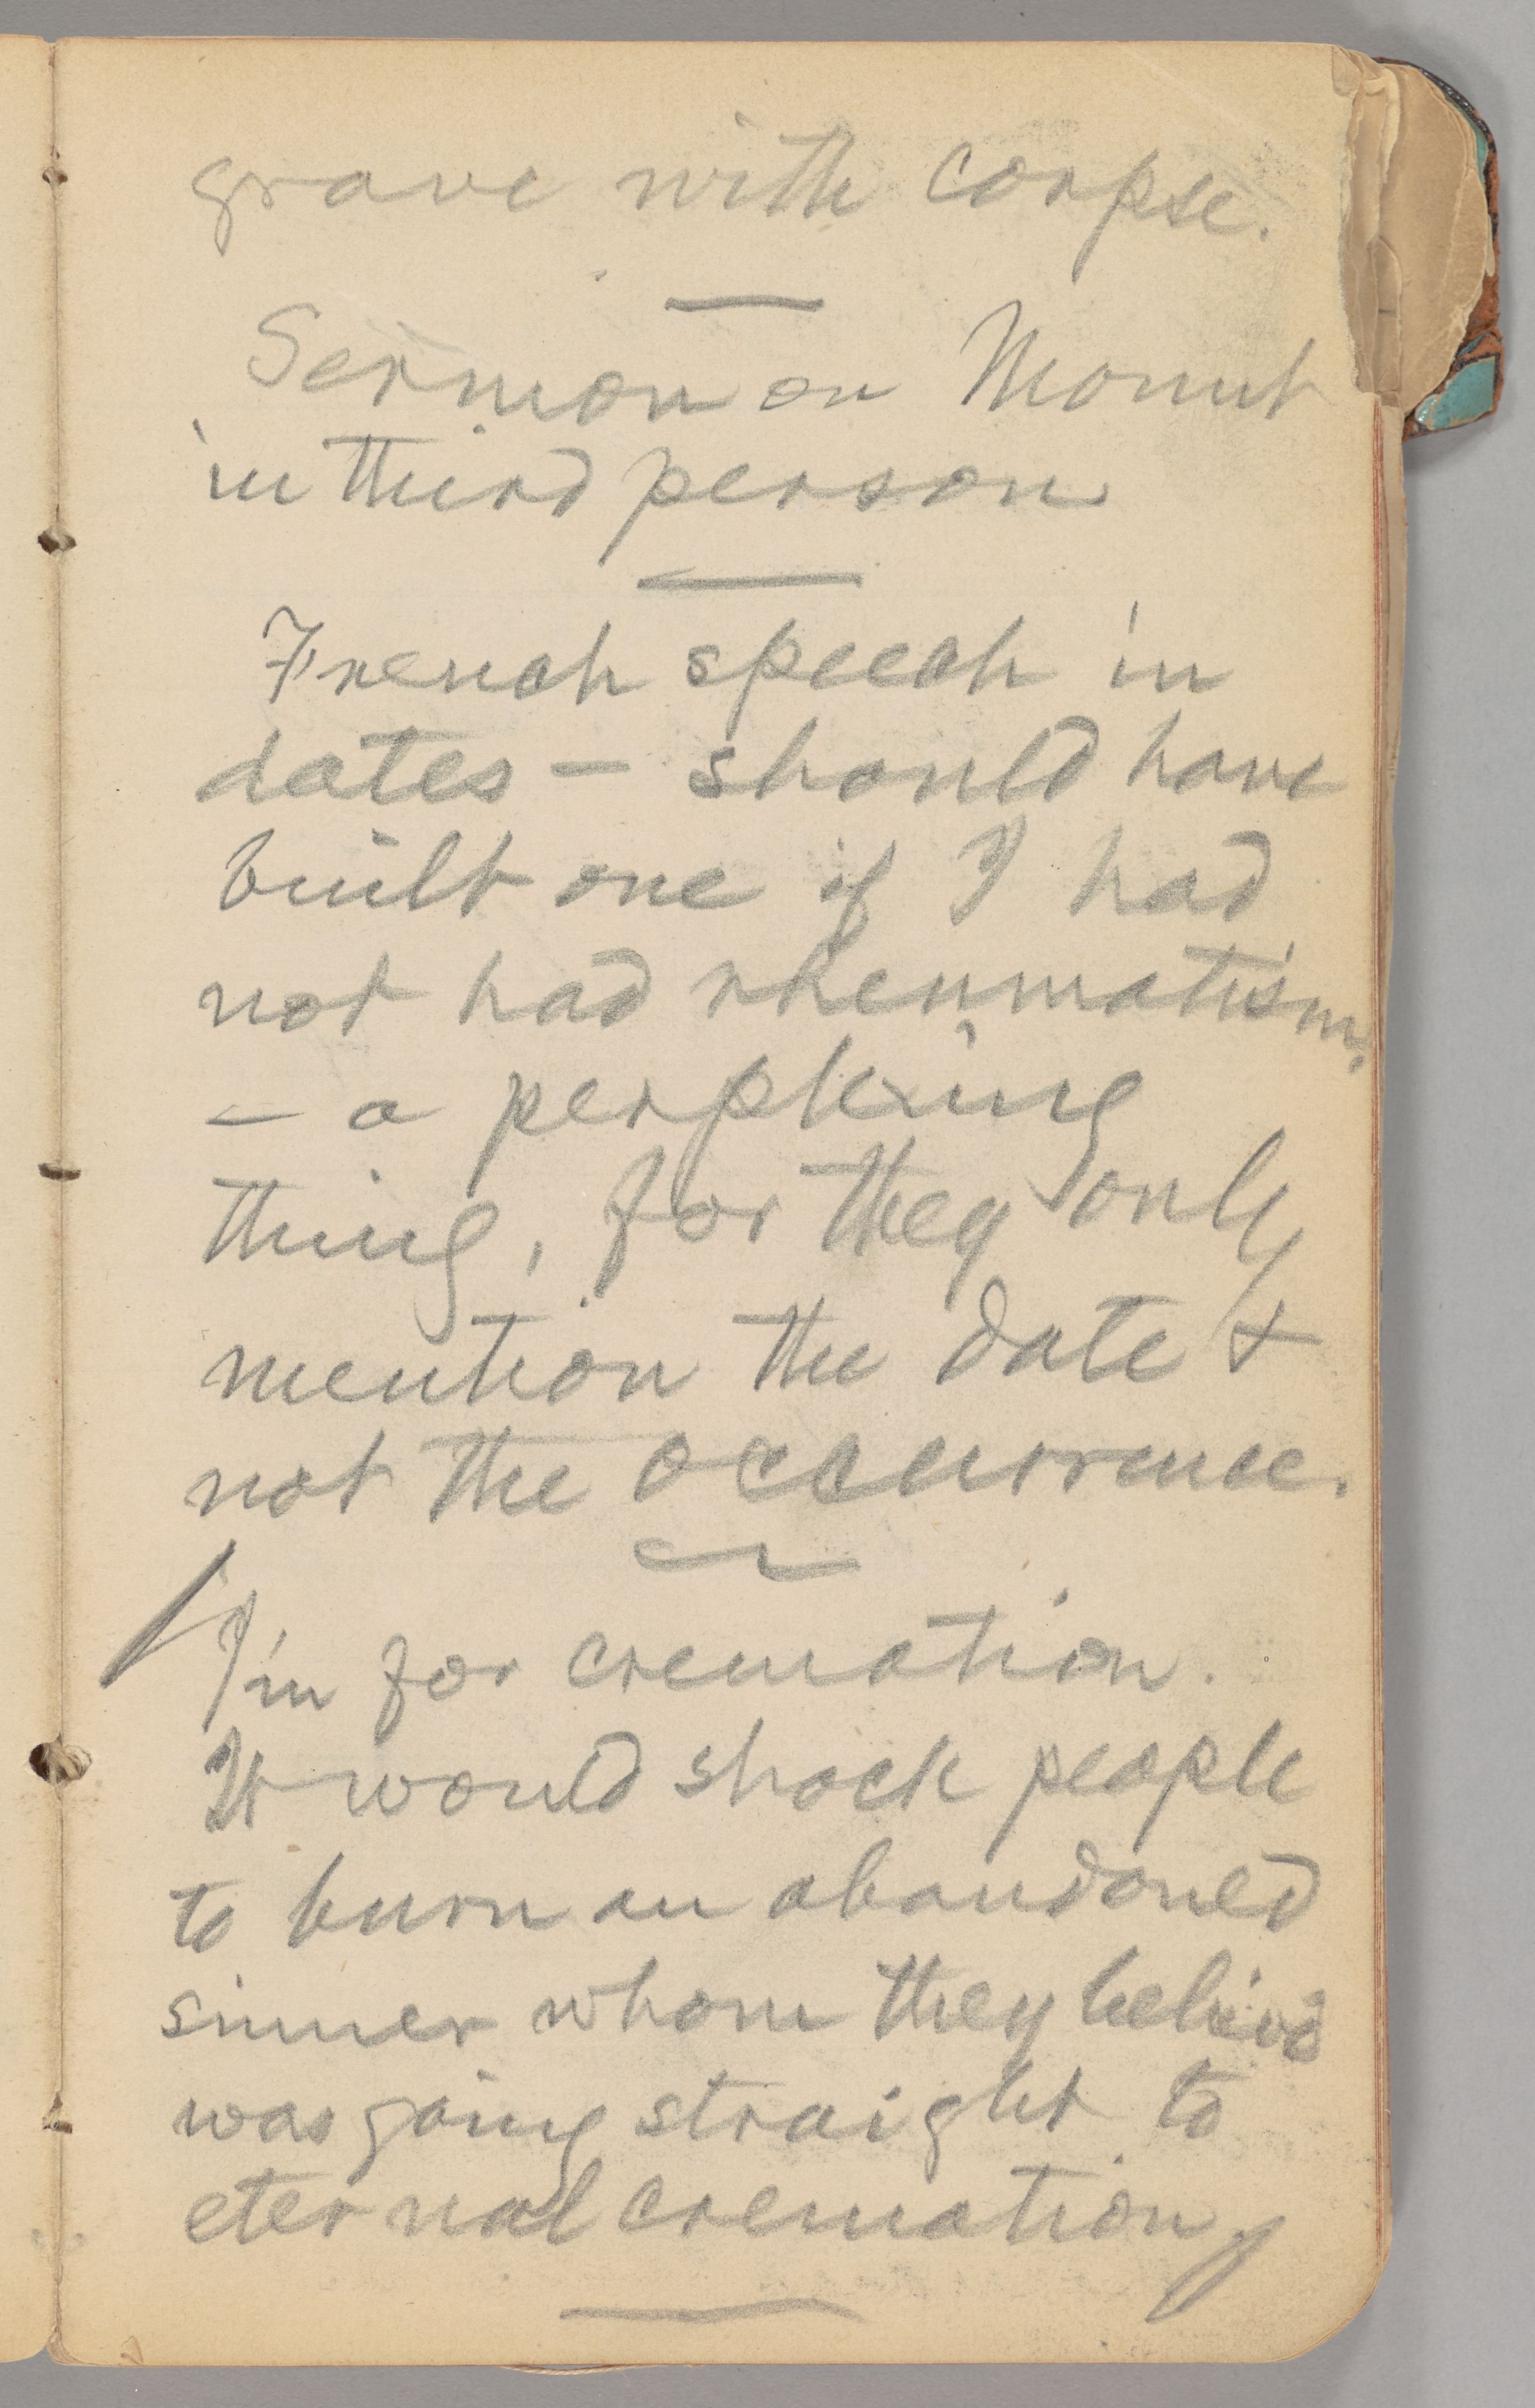 grave with corpse.
Sermon on Mount
in third person
French speech in
dates — should have
built one if I had
not had rheumatism,
— a perplxing
thing, for they only
mention the date &
not the occurrence.
I'm for cremation.
It would shock people
to burn an abandoned
sinner whom they believe
was going straight to
eternal cremation